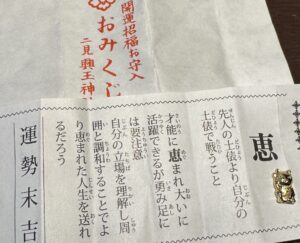 開運招福お守入
おみくじ
二見興玉神
恵
先人の土俵より自分の
土俵で戦うこと
才能に恵まれ大いに
活躍できるが勇み足に
は要注意
自分の立場を理解し周
囲と調和することでよ
り恵まれた人生を送れ
るだろう
運勢末吉